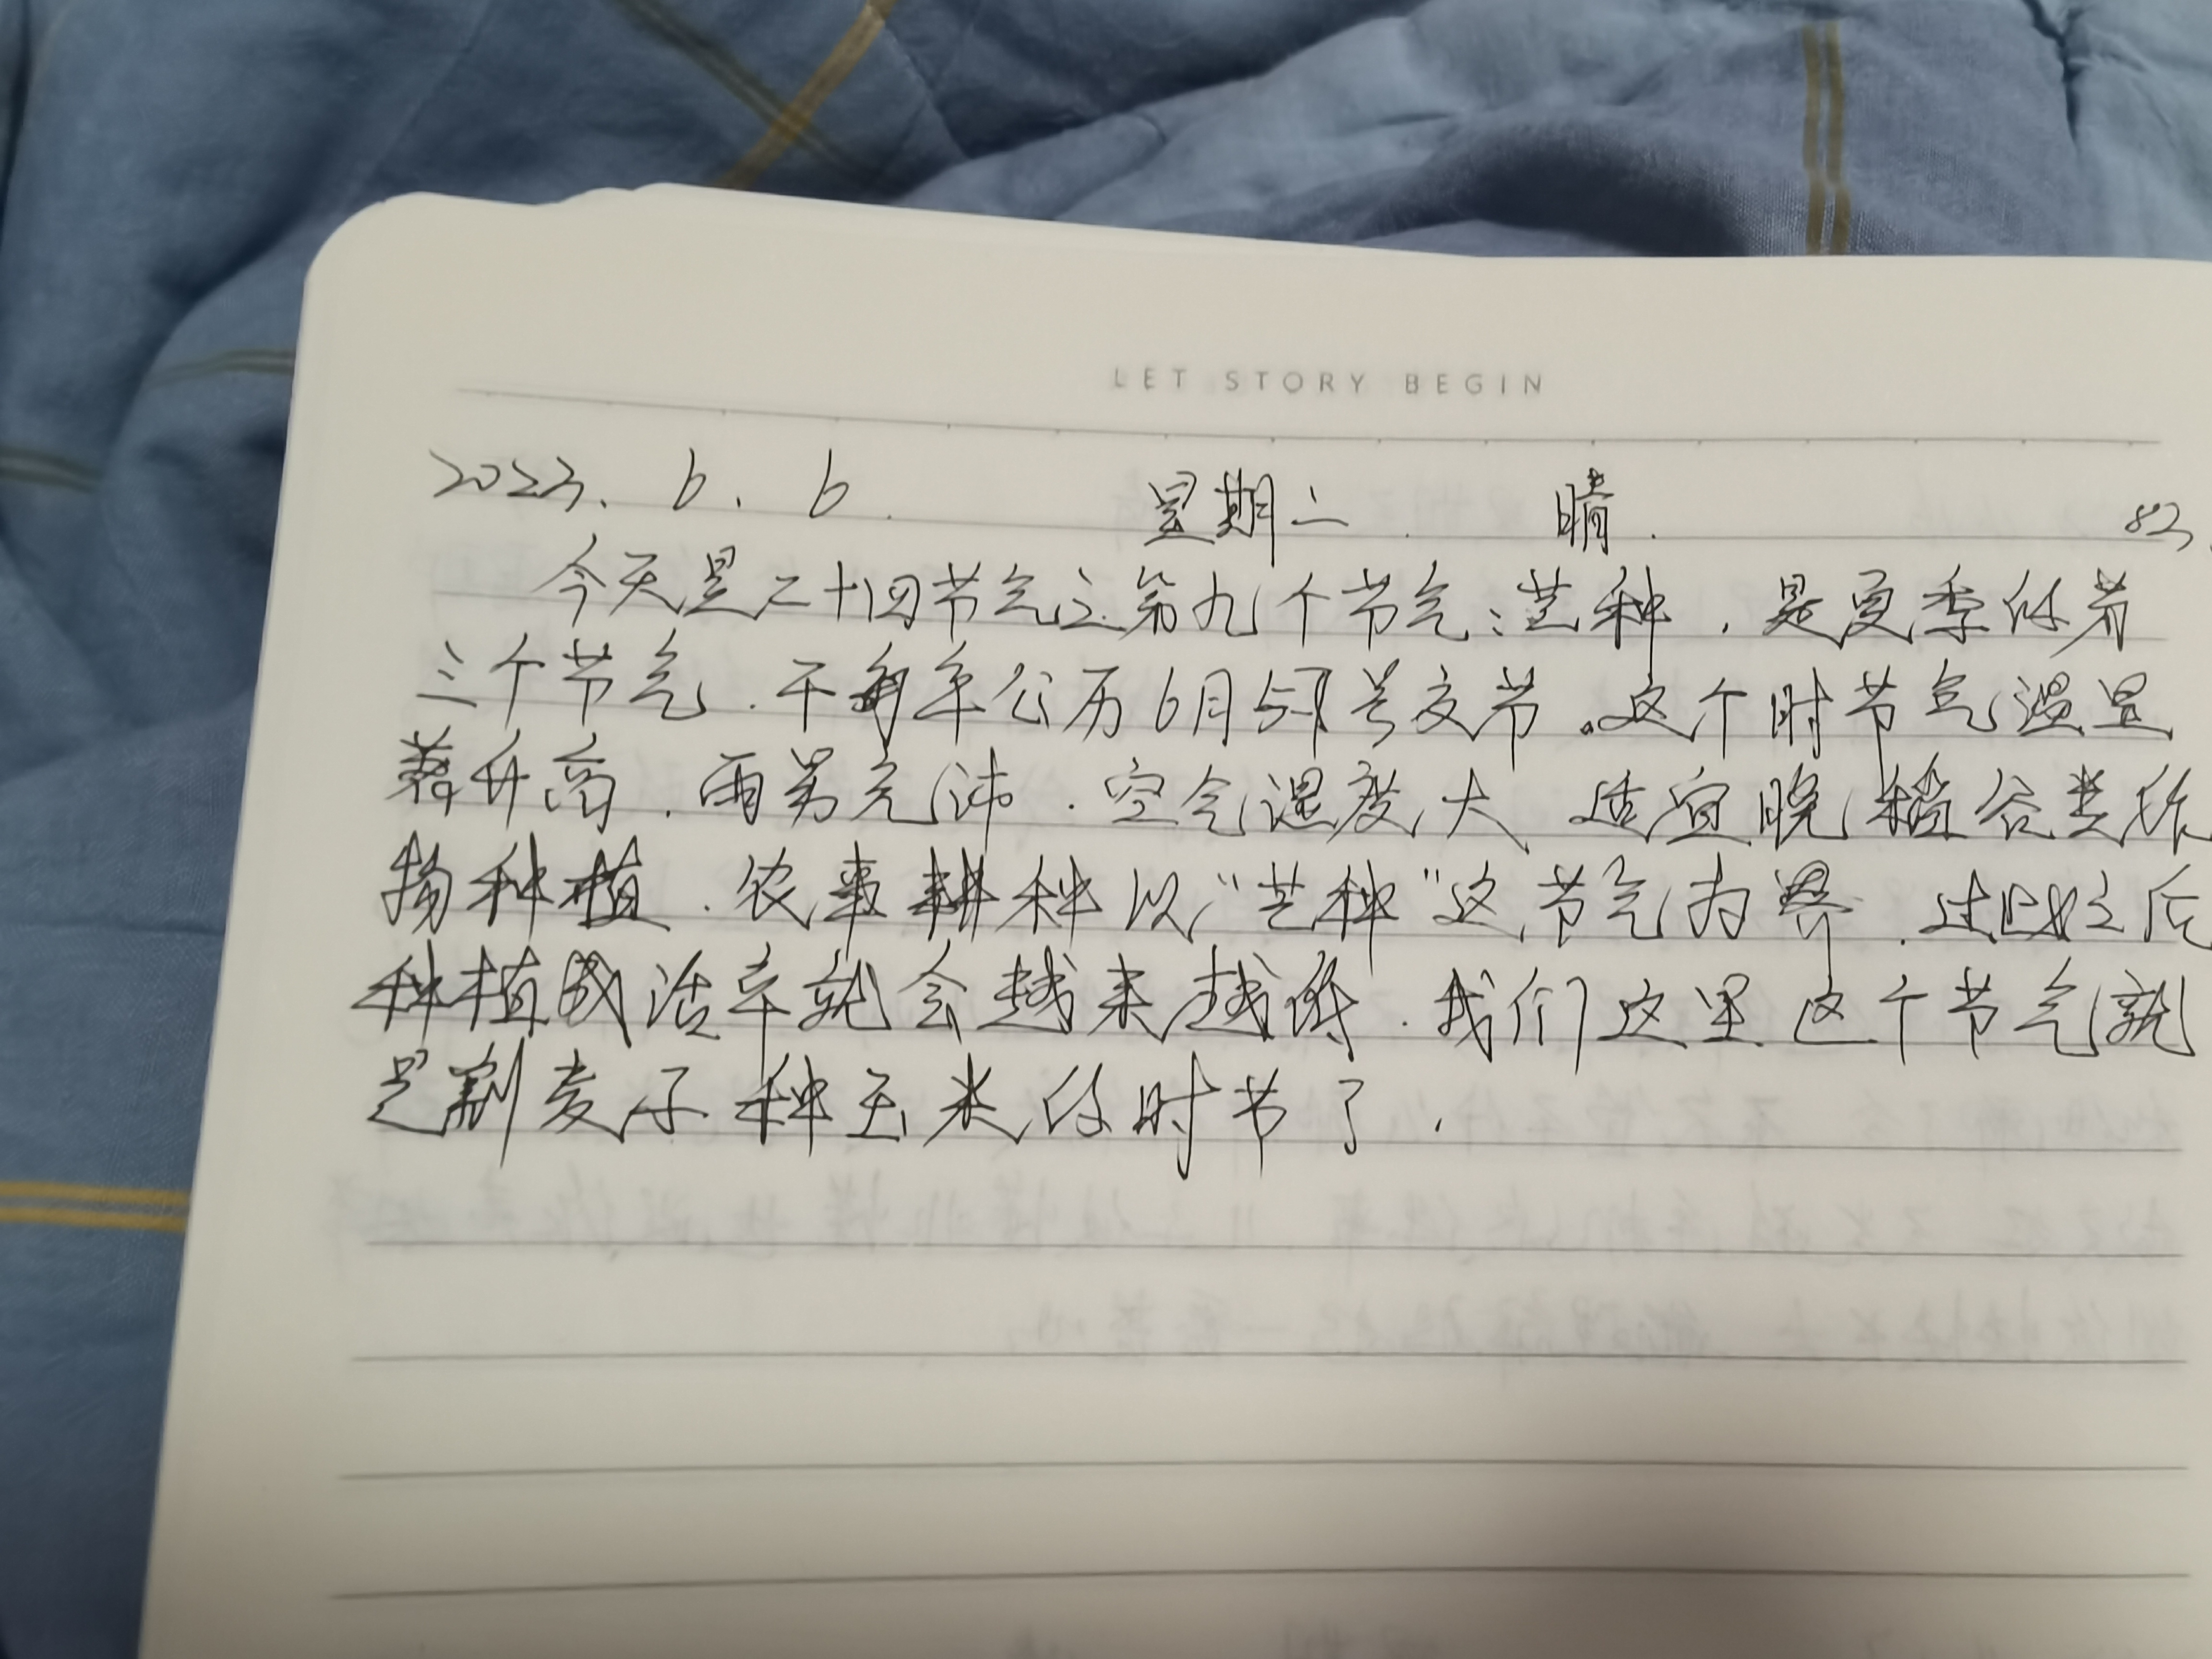 LET STORY BEGIN
2023. 6. 6. 星期二. 晴. 83.
今天是二十四节气之第九个节气:芒种.是夏季的第
三个节气.于每年公历6月5或7号交节.这个时节气温显
著升高.雨量充沛.空气湿度大 适宜晚稻谷类作
物种植.农事耕种以“芒种”这节气为界.过此之后
种植成活率就会越来越低.我们这里这个节气就
是割麦子种玉米的时节了.